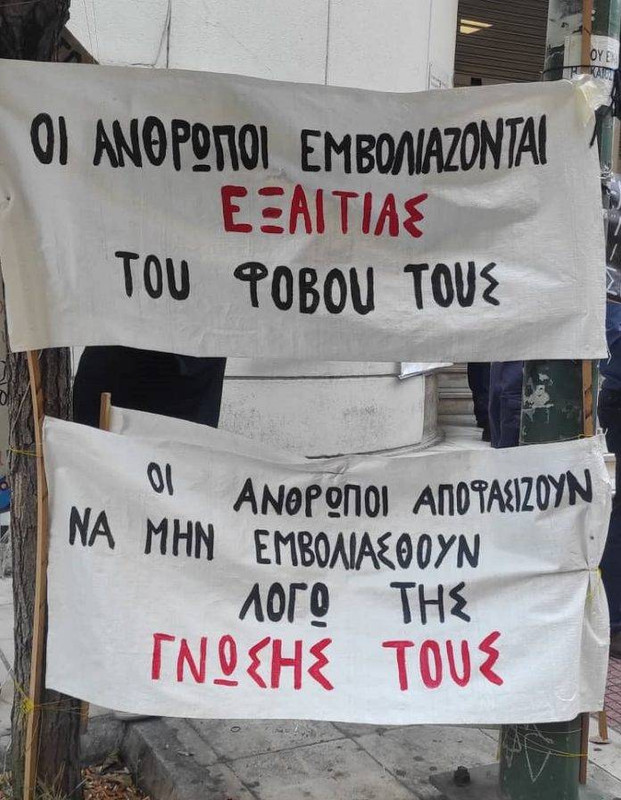 ΟΙ ΑΝΘΡΩΠΟΙ ΕΜΒΟΛΙΑΖΟΝΤΑΙ
ΕΞΑΙΤΙΑΣ
ΤΟΥ ΦΟΒΟΥ ΤΟΥΣ
ΟΙ ΑΝΘΡΩΠΟΙ ΑΠΟΦΑΣΙΖΟΥΝ
ΝΑ ΜΗΝ ΕΜΒΟΛΙΑΣΘΟΥΝ
ΛΟΓΩ ΤΗΣ
ΓΝΩΣΗΣ ΤΟΥΣ